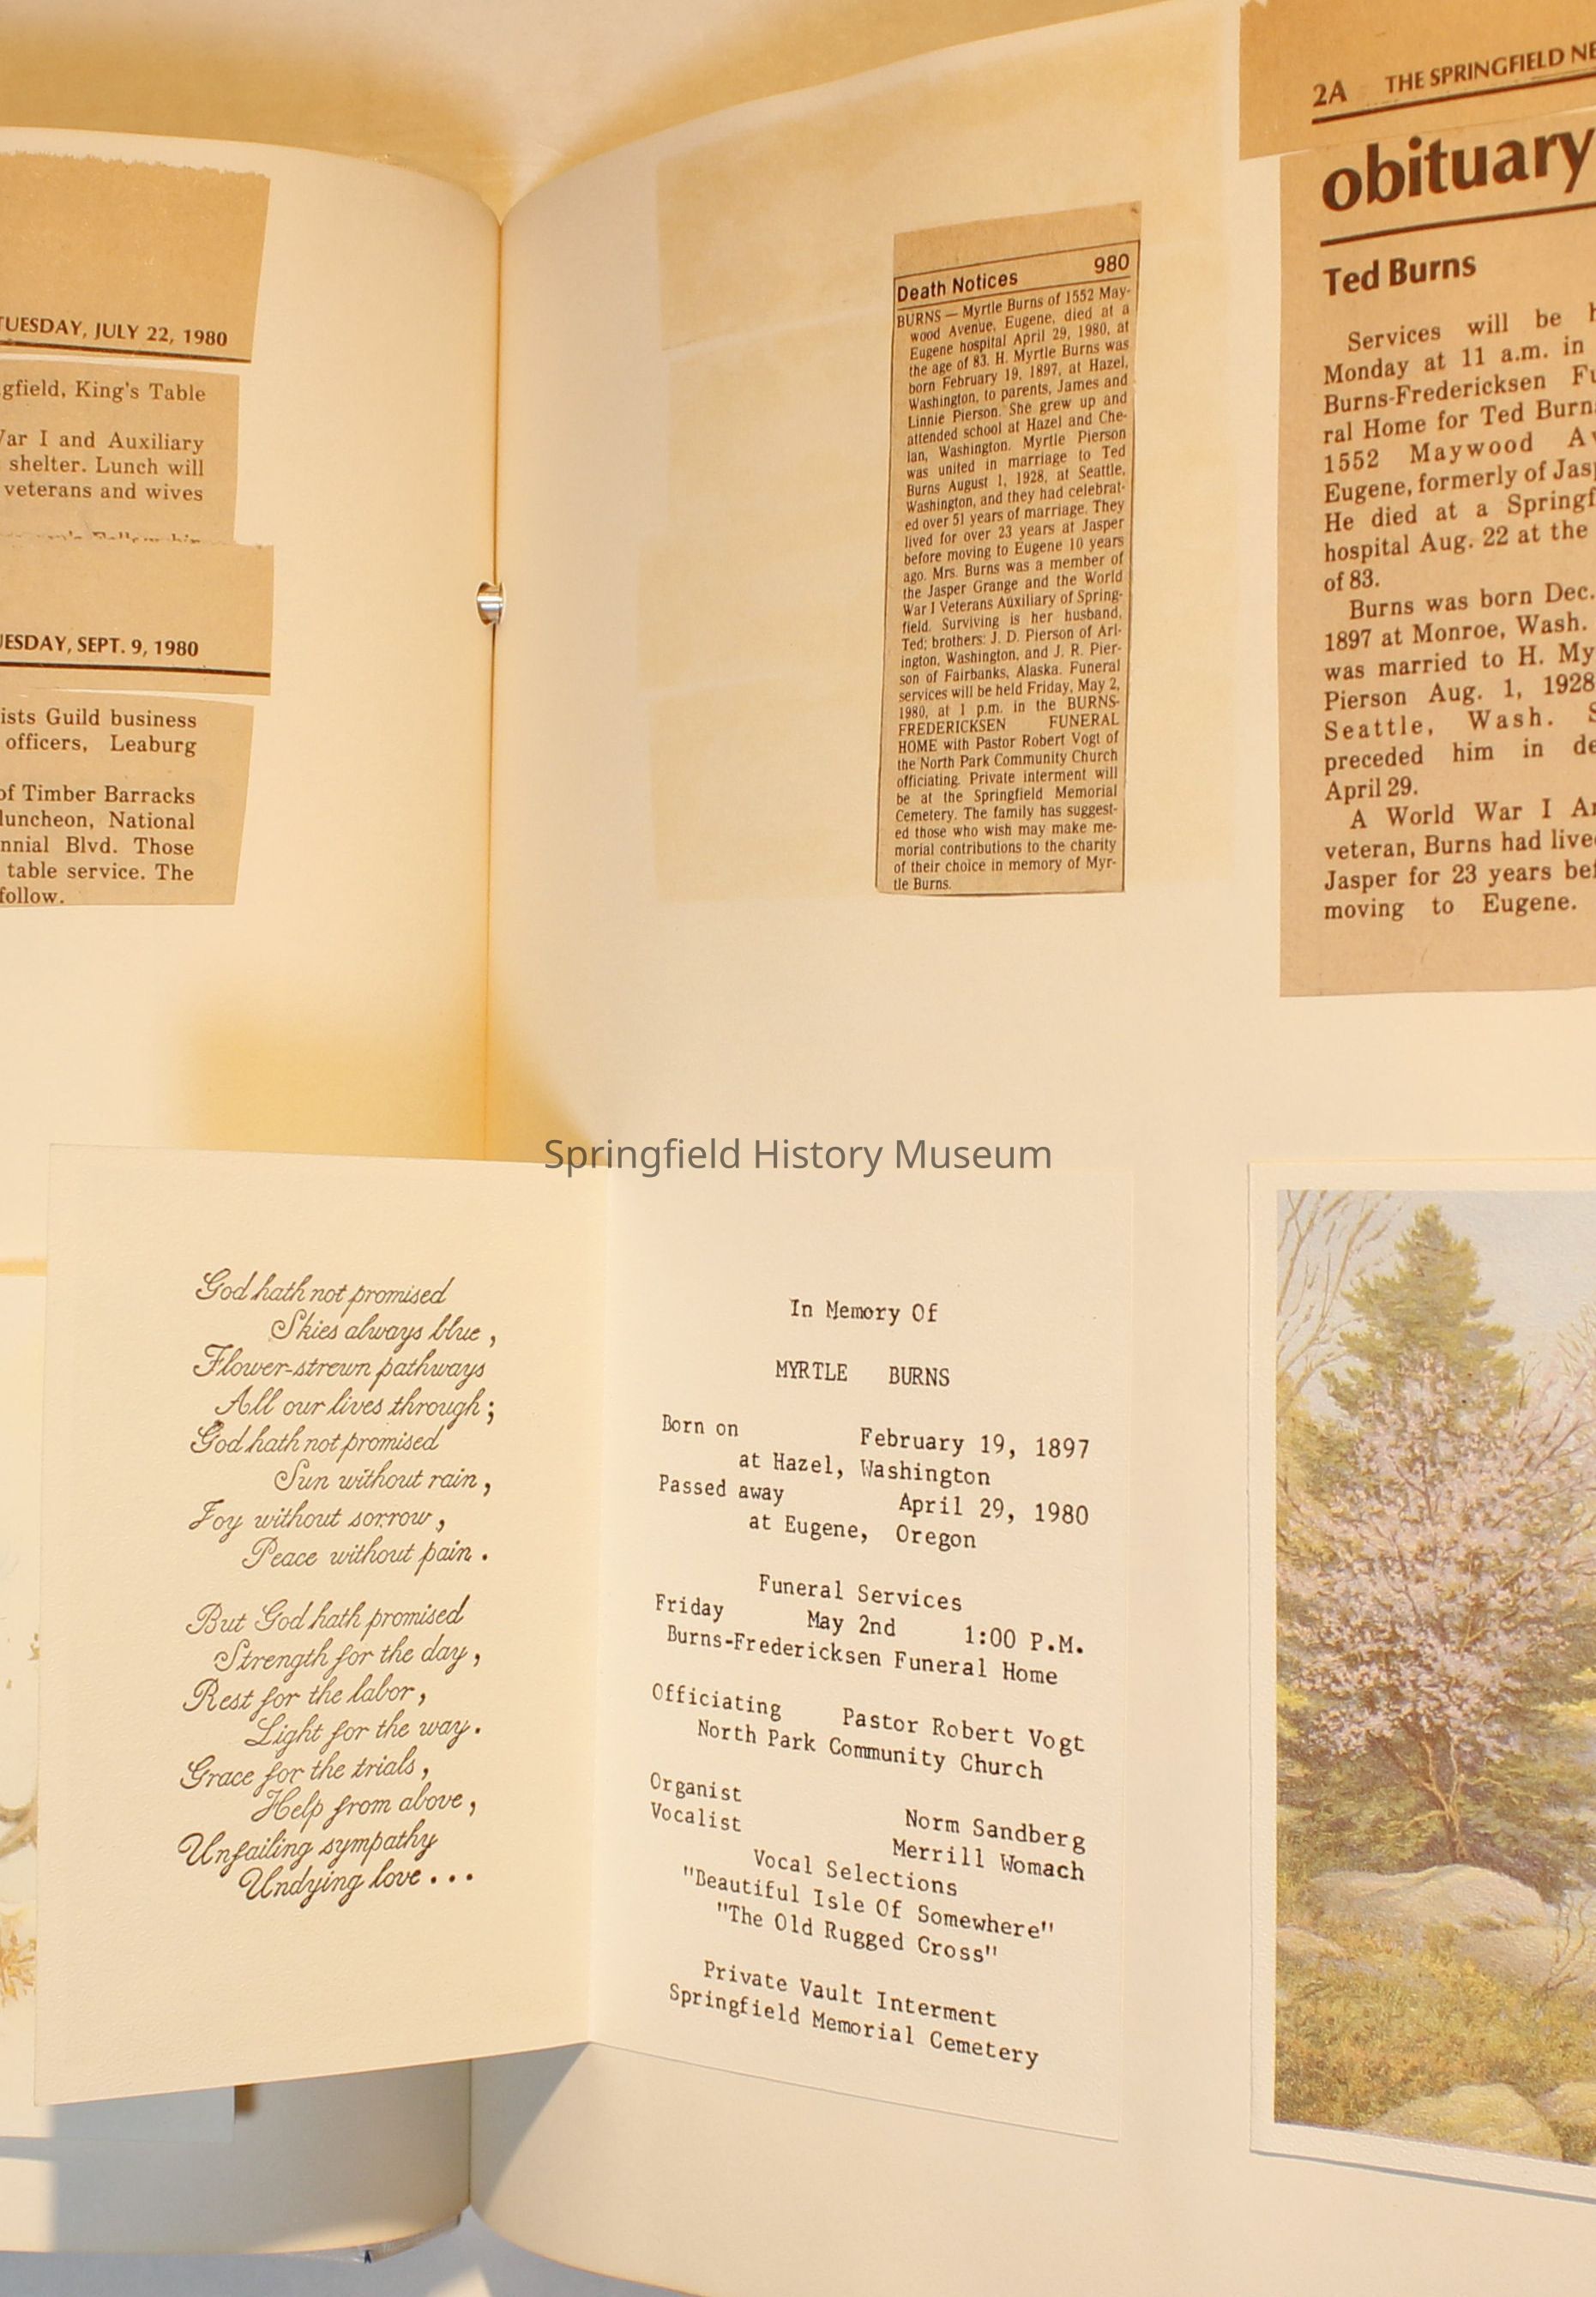 TUESDAY, JULY 22, 1980
King's Table
War I and Auxiliary
shelter. Lunch will
veterans and wives
SEPT. 9, 1980
Guild business
officers, Leaburg
of Timber Barracks
luncheon, National
Blvd. Those
table service. The
follow.
Death Notices 980
BURNS — Myrtle Burns of 1552 May-
wood Avenue, Eugene, died at a
Eugene hospital April 29, 1980, at
the age of 83. H. Myrtle Burns was
born February 19, 1897, at Hazel,
Washington, to parents, James and
Linnie Pierson. She grew up and
attended school at Hazel and Che-
lan, Washington. Myrtle Pierson
was united in marriage to Ted
Burns August 1, 1928, at Seattle,
Washington, and they had celebrat-
ed over 51 years of marriage. They
lived for over 23 years at Jasper
before moving to Eugene 10 years
ago. Mrs. Burns was a member of
the Jasper Grange and the World
War I Veterans Auxiliary of Spring-
field. Surviving is her husband,
Ted; brothers: J. D. Pierson of Arl-
ington, Washington, and J. R. Pier-
son of Fairbanks, Alaska. Funeral
services will be held Friday, May 2,
1980, at 1 p.m. in the BURNS-
FREDERICKSEN FUNERAL
HOME with Pastor Robert Vogt of
the North Park Community Church
officiating. Private interment will
be at the Springfield Memorial
Cemetery. The family has suggest-
ed those who wish may make me-
morial contributions to the charity
of their choice in memory of Myr-
tle Burns.
2A THE SPRINGFIELD
obituary
Ted Burns
Services will be
Monday at 11 a.m. in
Burns-Fredericksen
ral Home for Ted
1552 Maywood
Eugene, formerly of
He died at a
hospital Aug. 22 at the
of 83.
Burns was born Dec.
1897 at Monroe, Wash.
was married to H.
Pierson Aug. 1, 1928
Seattle, Wash.
preceded him in
April 29.
A World War I
veteran, Burns had
Jasper for 23 years
moving to Eugene.
Springfield History Museum
God hath not promised
Skies always blue,
Flower-strewn pathways
All our lives through;
God hath not promised
Sun without rain,
Joy without sorrow,
Peace without pain.
But God hath promised
Strength for the day,
Rest for the labor,
Light for the way.
Grace for the trials,
Help from above,
Unfailing sympathy
Undying love...
In Memory Of
MYRTLE BURNS
Born on February 19, 1897
at Hazel, Washington
Passed away April 29, 1980
at Eugene, Oregon
Funeral Services
Friday May 2nd 1:00 P.M.
Burns-Fredericksen Funeral Home
Officiating Pastor Robert Vogt
North Park Community Church
Organist Norm Sandberg
Vocalist Merrill Womach
Vocal Selections
"Beautiful Isle Of Somewhere"
"The Old Rugged Cross"
Private Vault Interment
Springfield Memorial Cemetery